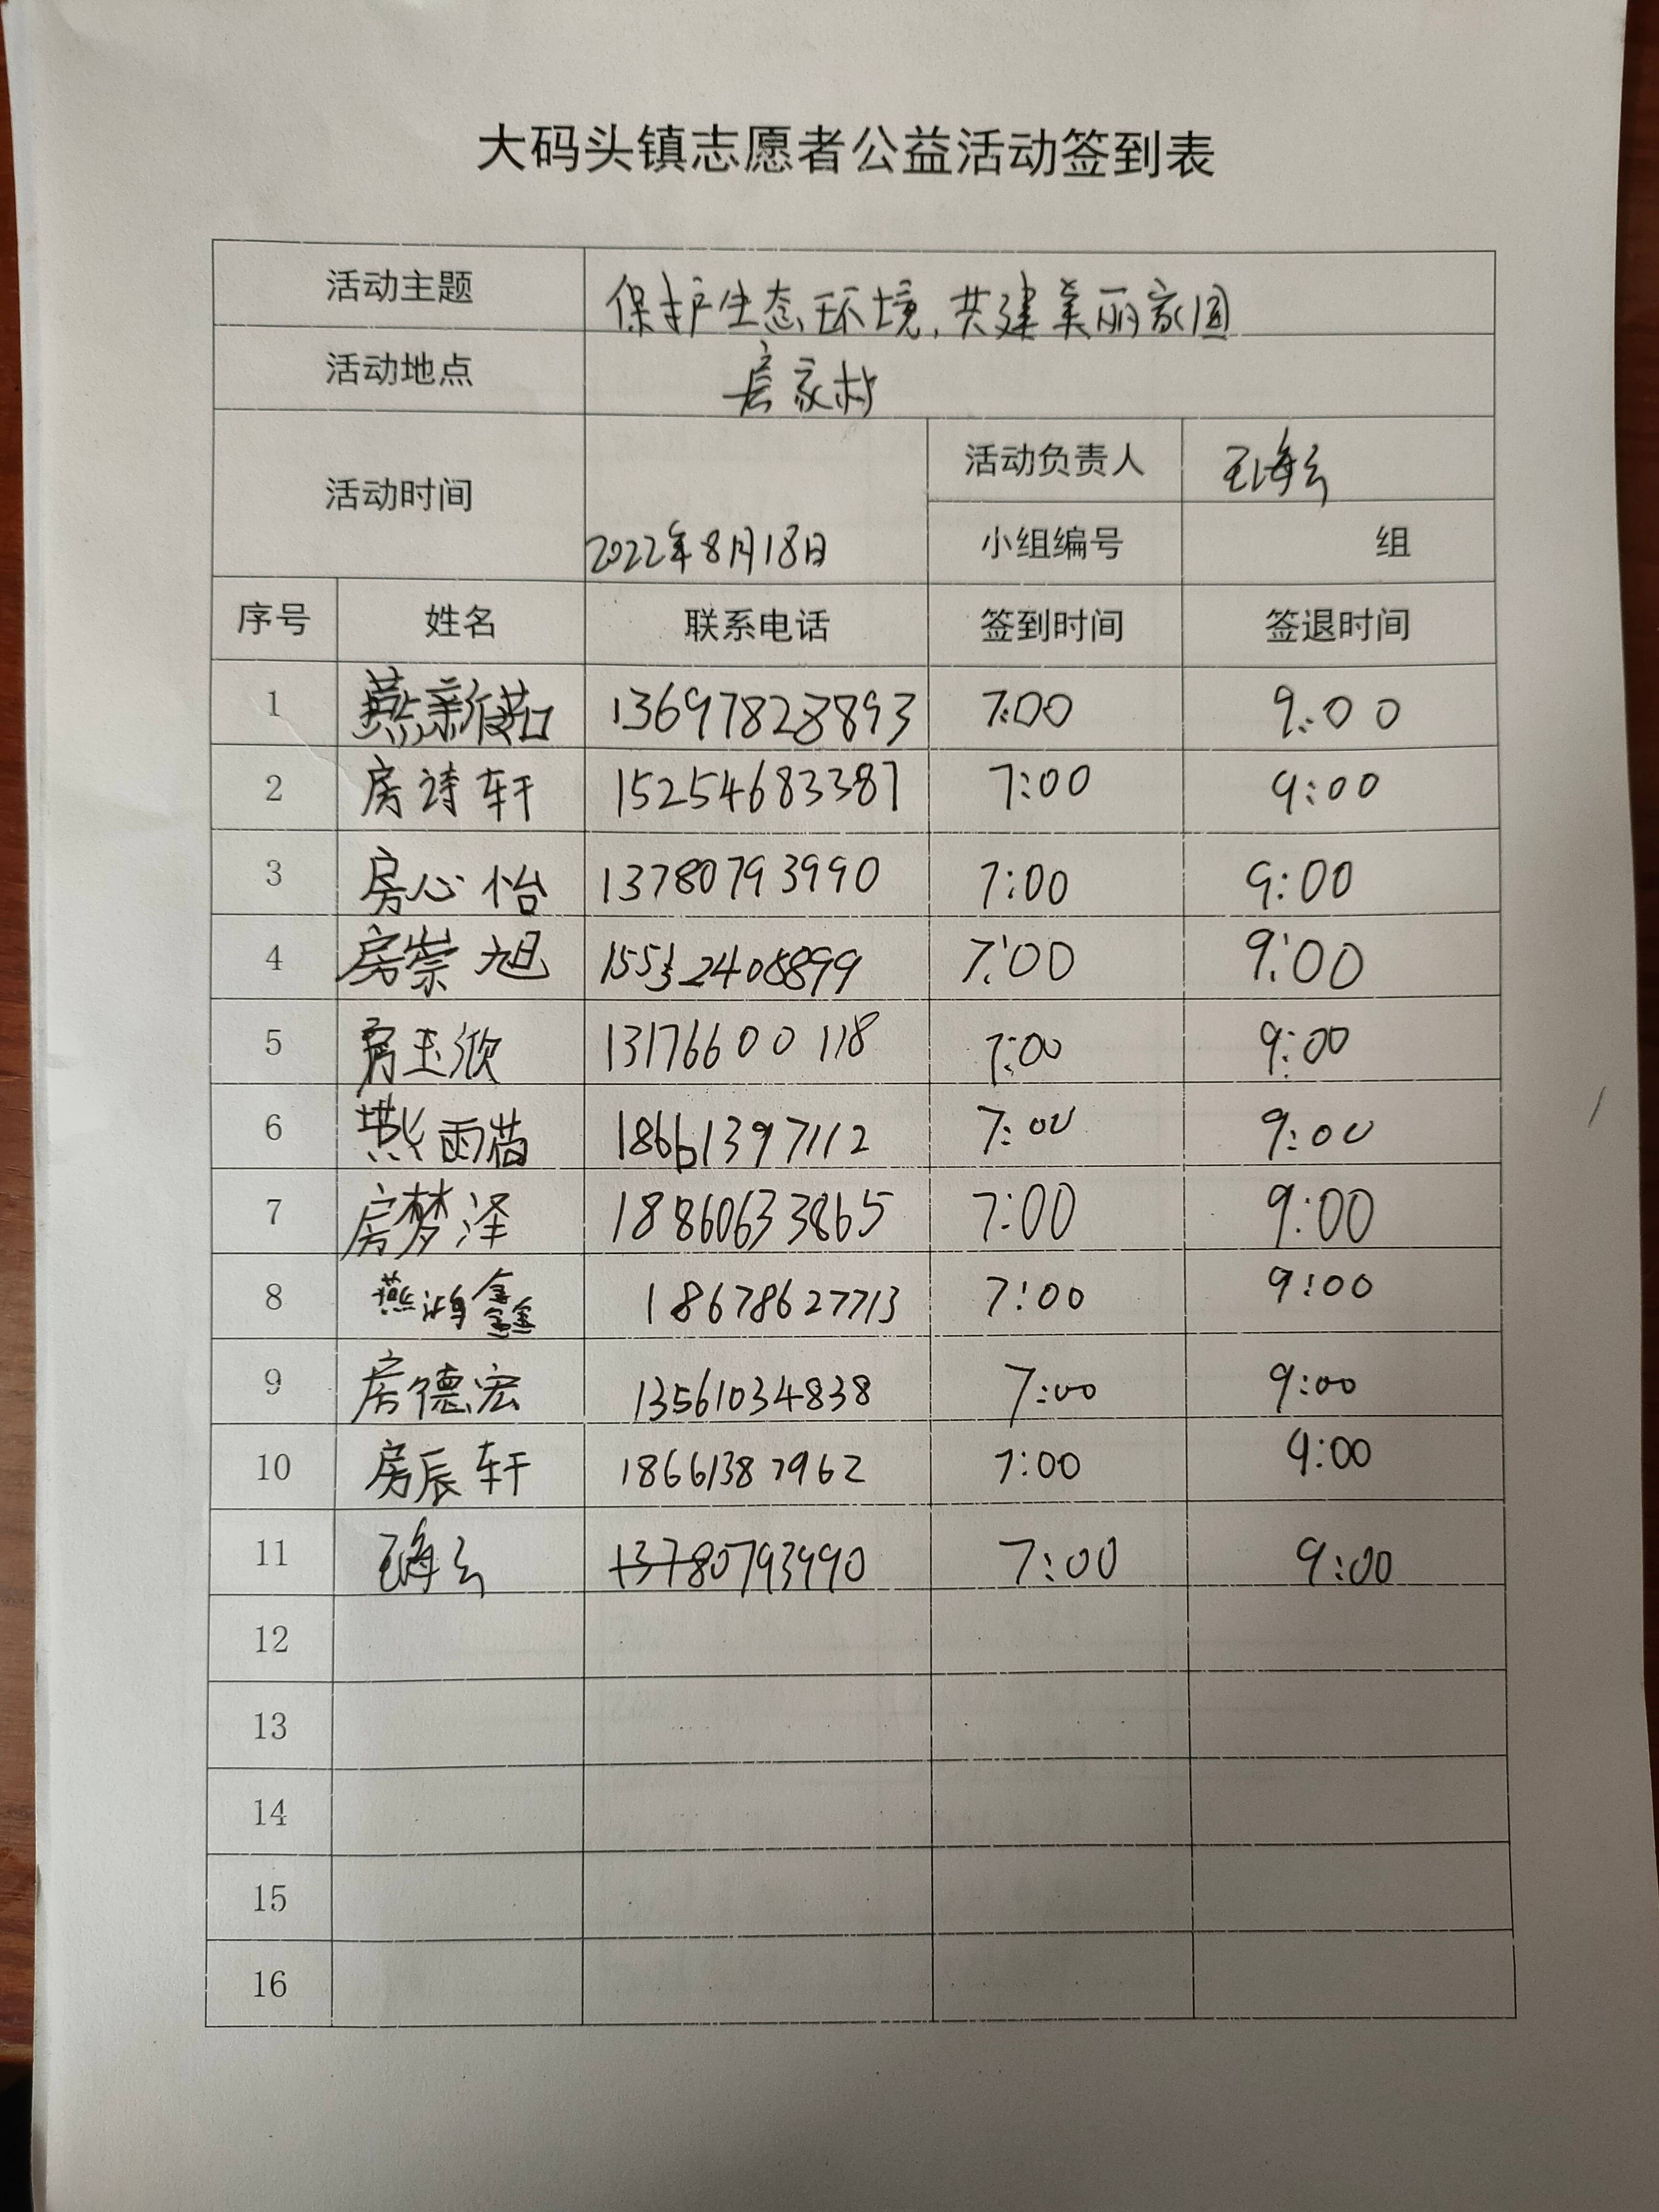 大码头镇志愿者公益活动签到表
活动主题 保护生态环境,共建美丽家园
活动地点 房家村
活动时间 2022年8月18日 活动负责人 王海云
小组编号 组
序号 姓名 联系电话 签到时间 签退时间
1 燕新茹 13697828893 7:00 9:00
2 房诗轩 15254683387 7:00 9:00
3 房心怡 13780793990 7:00 9:00
4 房崇旭 7:00 9:00
5 房玉欣 13176600118 7:00 9:00
6 燕雨茜 18661397112 7:00 9:00
7 房梦泽 18860633865 7:00 9:00
8 燕鸿鑫 18678627713 7:00 9:00
9 房德宏 13561034838 7:00 9:00
10 房辰轩 18661387962 7:00 9:00
11 王海云 13780793990 7:00 9:00
12
13
14
15
16